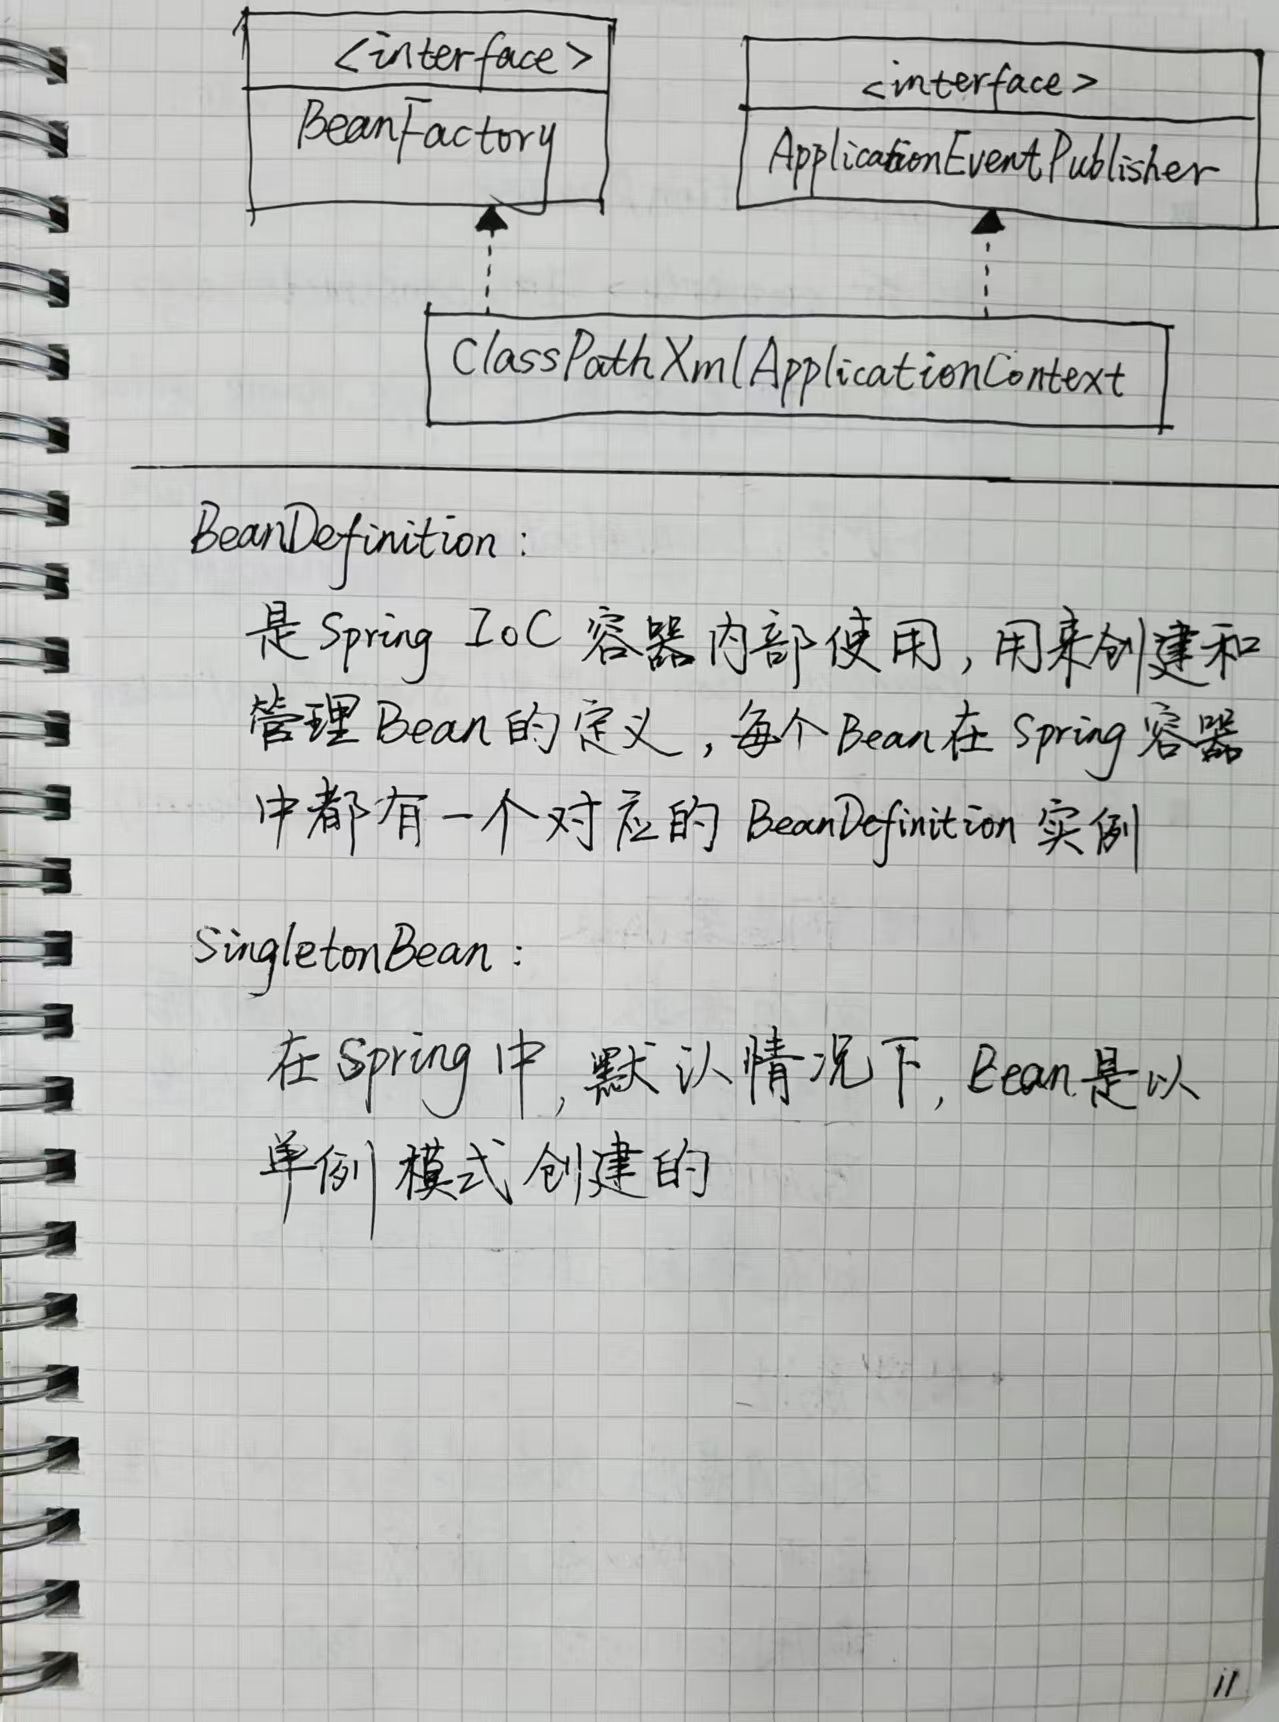 <interface>
BeanFactory
<interface>
ApplicationEventPublisher
ClassPathXmlApplicationContext
BeanDefinition:
是Spring IoC 容器内部使用,用来创建和
管理Bean的定义,每个Bean在Spring容器
中都有一个对应的 BeanDefinition 实例
SingletonBean:
在Spring中,默认情况下,Bean是以
单例模式创建的
11